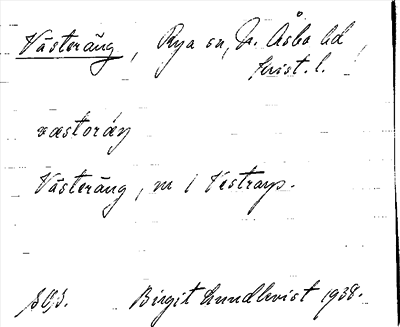 Västeräng, Rya sn, N. Åsbo hd,
Krist. l.
væstoráŋ
Västeräng, m
Birgit Lundkvist 1938.